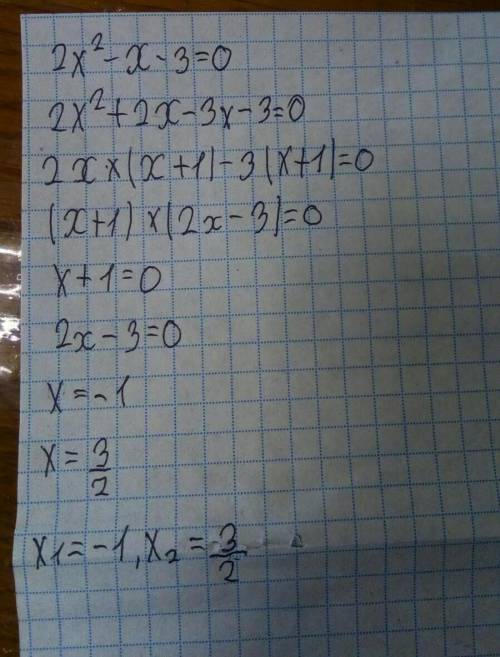 2x² - x - 3 = 0
2x² + 2x - 3x - 3 = 0
2x × (x + 1) - 3(x + 1) = 0
(x + 1) × (2x - 3) = 0
x + 1 = 0
2x - 3 = 0
x = -1
x = 3/2
x₁ = -1, x₂ = 3/2